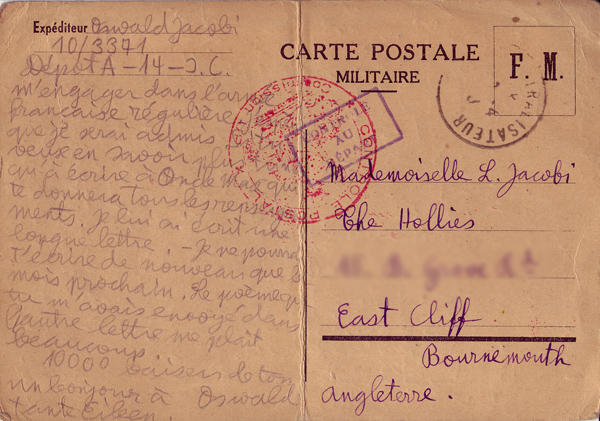 Expéditeur Oswald Jacobi
10/3371
Dépot A - 14 - J.C.
m'engager dans l'armée
française régulière
que je serai admis
veux en savoir plus
qu'à écrire à Oncle Max qui
te donnera tous les
ments. Je lui ai écrit une
longue lettre. - Je ne
t'écrire de nouveau que
mois prochain. Le poème
tu m'avais envoyé dans
l'autre lettre me plaît
beaucoup.
10000 baisers de ton
un bonjour à Oswald
tante Eileen.
CARTE POSTALE
MILITAIRE
F. M.
CONTRÔLE POSTAL
COMMISSION
AU
Mademoiselle L. Jacobi
The Hollies
East Cliff
Bournemouth
Angleterre.